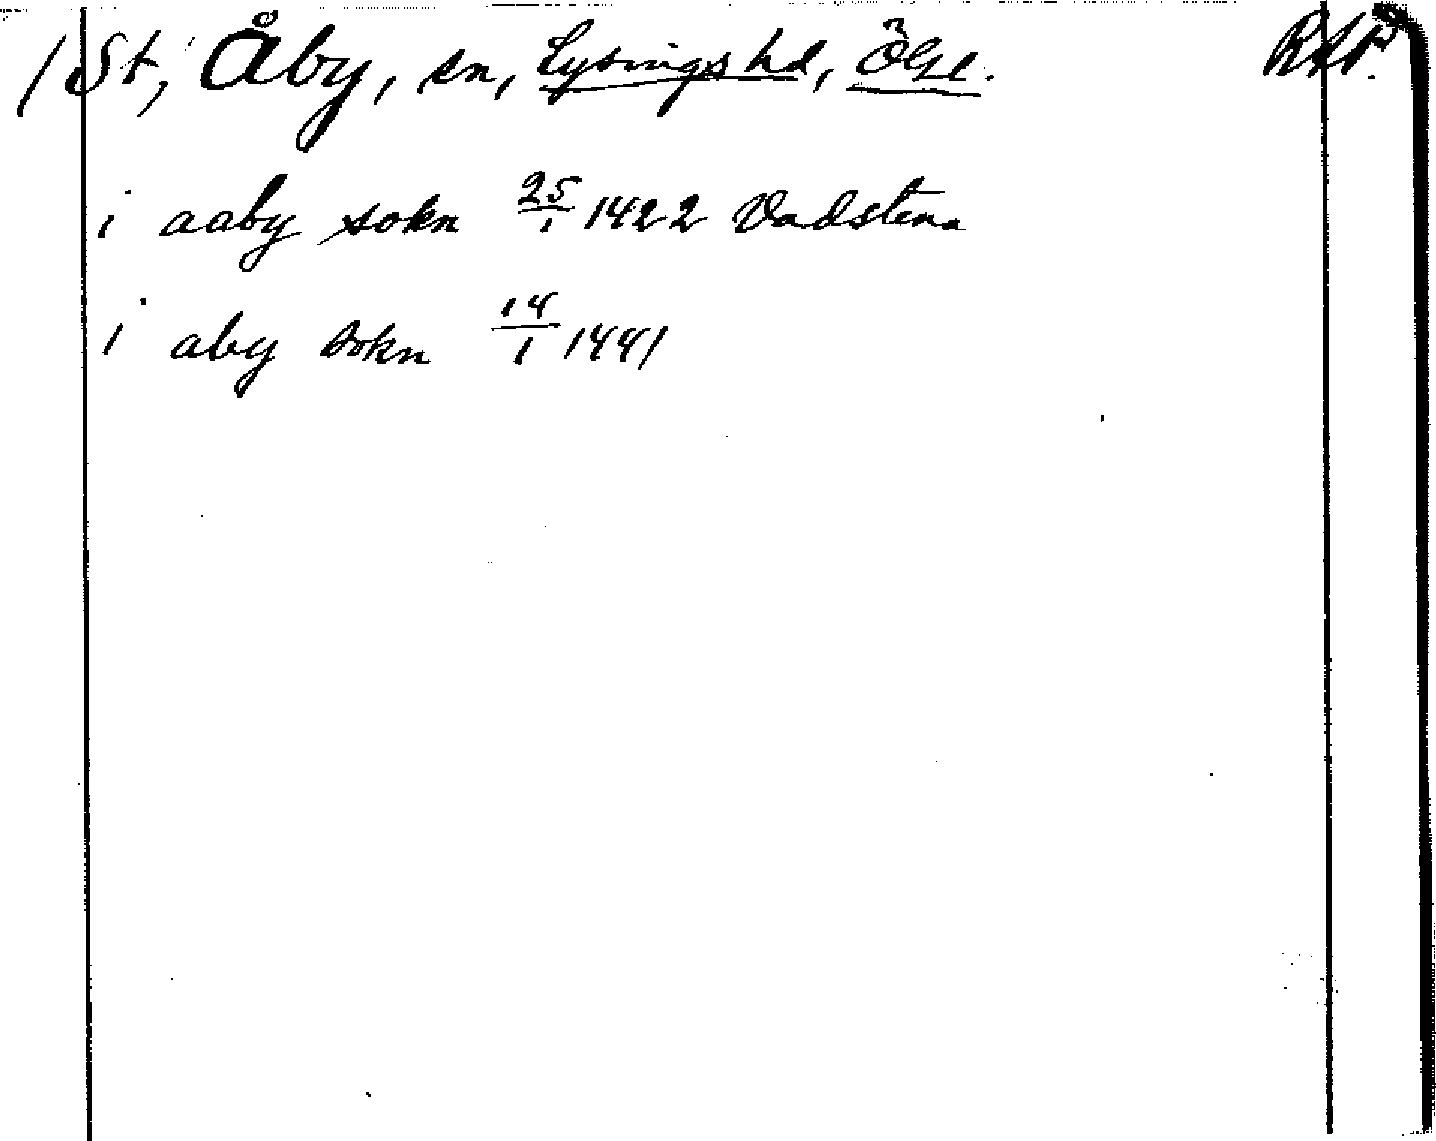 / St, Åby, sn, Lysings hd, Ögl. RAP.
i aaby sokn 25/1 1422 Vadstena
i aby sokn 14/1 1441